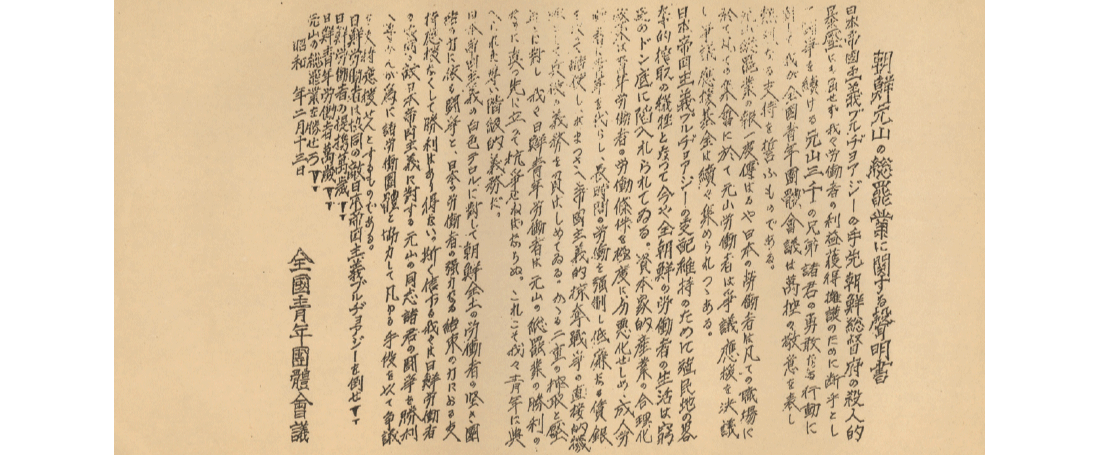 朝鮮元山の総罷業に関する聲明書
日本帝国主義ブルヂョアジーの手先朝鮮総督府の殺人的
暴壓にも屈せず我々労働者の利益獲得擁護のために断乎とし
闘争を続ける元山三千の兄弟諸君の勇敢なる行動に
対して我が全國青年團體會議は萬腔の敬意を表し
なる支持を誓ふものである。
罷業の報一度傳はるや日本の労働者は凡ての職場に
於て 元山労働者は争議應援を決議
し争議應援基金は続々集められつゝある。
日本帝国主義ブルヂョアジーの支配維持のために殖民地
的搾取の 今や全朝鮮の労働者の生活は窮
乏のドン底に陥入れられてゐる。資本家的産業の合理化
は 労働者の労働条件を極度に方悪化せしめ、成人労
働者 青年を代らし、長時間の労働を強制し低廉なる賃銀
を 帝国主義的掠奪戦争の直接的犠
の義務を負はしめてゐる。かゝる二重の搾取と壓
に對し我々日鮮青年労働者は元山の総罷業の勝利の
ために真つ先に立つて抗争せねばならぬ。これこそ我々青年に與
へられた 階級的義務だ。
日本帝国主義の白色テロルに對して朝鮮全土の労働者の堅き團
結の力に依る闘争と、日本の労働者の強力なる結束の力による
應援なくして勝利はあり得ない。斯く信ずる我々は日鮮労働者
の 敵日本帝国主義に對する元山の同志諸君の闘争を勝利
に 為に諸労働團體と協力して凡ゆる手段を以て争議
を 應援せんとするものである。
日鮮労働者は協同の敵日本帝国主義ブルヂョアジーを倒せ
日鮮労働者の提携萬歳
日鮮青年労働者萬歳
元山の総罷業を勝せろ
昭和 年二月十三日
全國青年團體會議